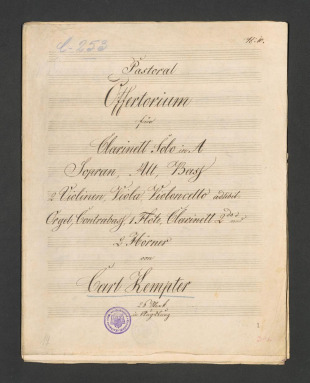 C-253
Pastoral
Offertorium
für
Clarinett Solo in A
Sopran, Alt, Bass
2 Violinen, Viola, Violoncello adlibit:
Orgel, Contrabass, 1 Flöte, Clarinett 2da
2 Hörner
von
Carl Kempter